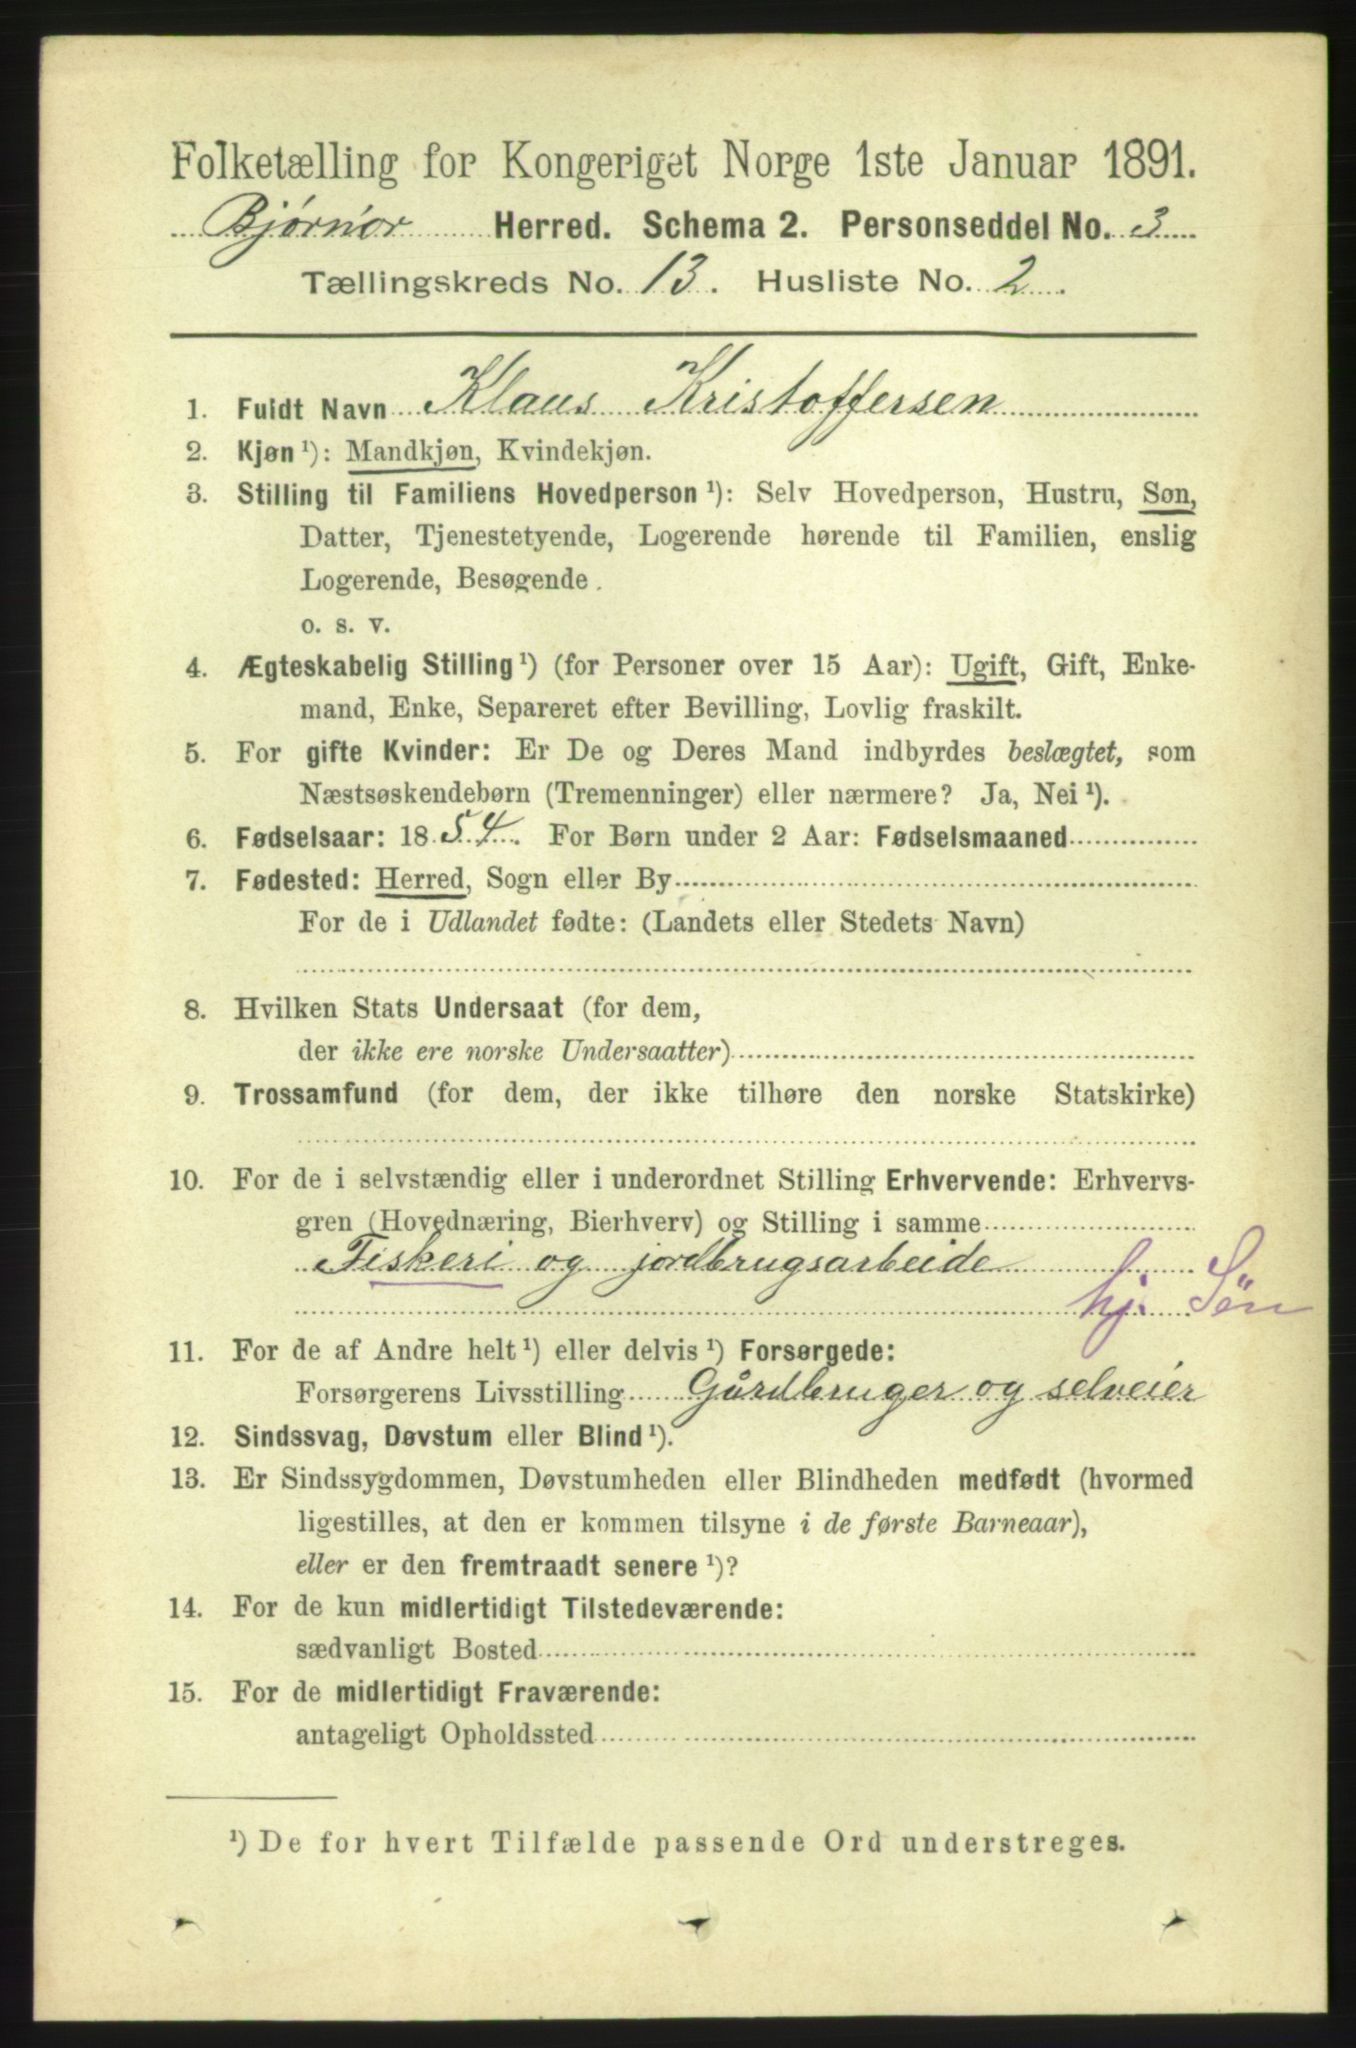 Folketælling for Kongeriget Norge 1ste Januar 1891.
Bjørnør Herred. Schema 2. Personseddel No. 3
Tællingskreds No. 13. Husliste No. 2
1. Fuldt Navn Klaus Kristoffersen
2. Kjøn¹): Mandkjøn, Kvindekjøn.
3. Stilling til Familiens Hovedperson¹): Selv Hovedperson, Hustru, Søn,
Datter, Tjenestetyende, Logerende hørende til Familien, enslig
Logerende, Besøgende.
o. s. v.
4. Ægteskabelig Stilling¹) (for Personer over 15 Aar): Ugift, Gift, Enke-
mand, Enke, Separeret efter Bevilling, Lovlig fraskilt.
5. For gifte Kvinder: Er De og Deres Mand indbyrdes beslægtet, som
Næstsøskendebørn (Tremenninger) eller nærmere? Ja, Nei¹).
6. Fødselsaar: 1854. For Børn under 2 Aar: Fødselsmaaned
7. Fødested: Herred, Sogn eller By
For de i Udlandet fødte: (Landets eller Stedets Navn)
8. Hvilken Stats Undersaat (for dem,
der ikke ere norske Undersaatter)
9. Trossamfund (for dem, der ikke tilhøre den norske Statskirke)
10. For de i selvstændig eller i underordnet Stilling Erhvervende: Erhvervs-
gren (Hovednæring, Bierhverv) og Stilling i samme
Fiskeri og jordbrugsarbeide
hj. Søn
11. For de af Andre helt¹) eller delvis¹) Forsørgede:
Forsørgerens Livsstilling Gårdbruger og selveier
12. Sindssvag, Døvstum eller Blind¹).
13. Er Sindssygdommen, Døvstumheden eller Blindheden medfødt (hvormed
ligestilles, at den er kommen tilsyne i de første Barneaar),
eller er den fremtraadt senere¹)?
14. For de kun midlertidigt Tilstedeværende:
sædvanligt Bosted
15. For de midlertidigt Fraværende:
antageligt Opholdssted
¹) De for hvert Tilfælde passende Ord understreges.